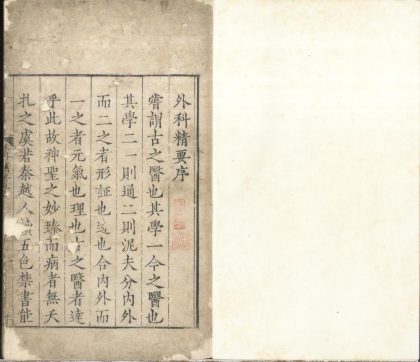 外科精要序
嘗謂古之醫也其學一今之醫也
其學二一則通二則泥夫分內外
而二之者形証也迹也合內外而
一之者元氣也理也古之醫者達
乎此故神聖之妙臻而病者無夭
扎之虞若秦越人五色禁書能